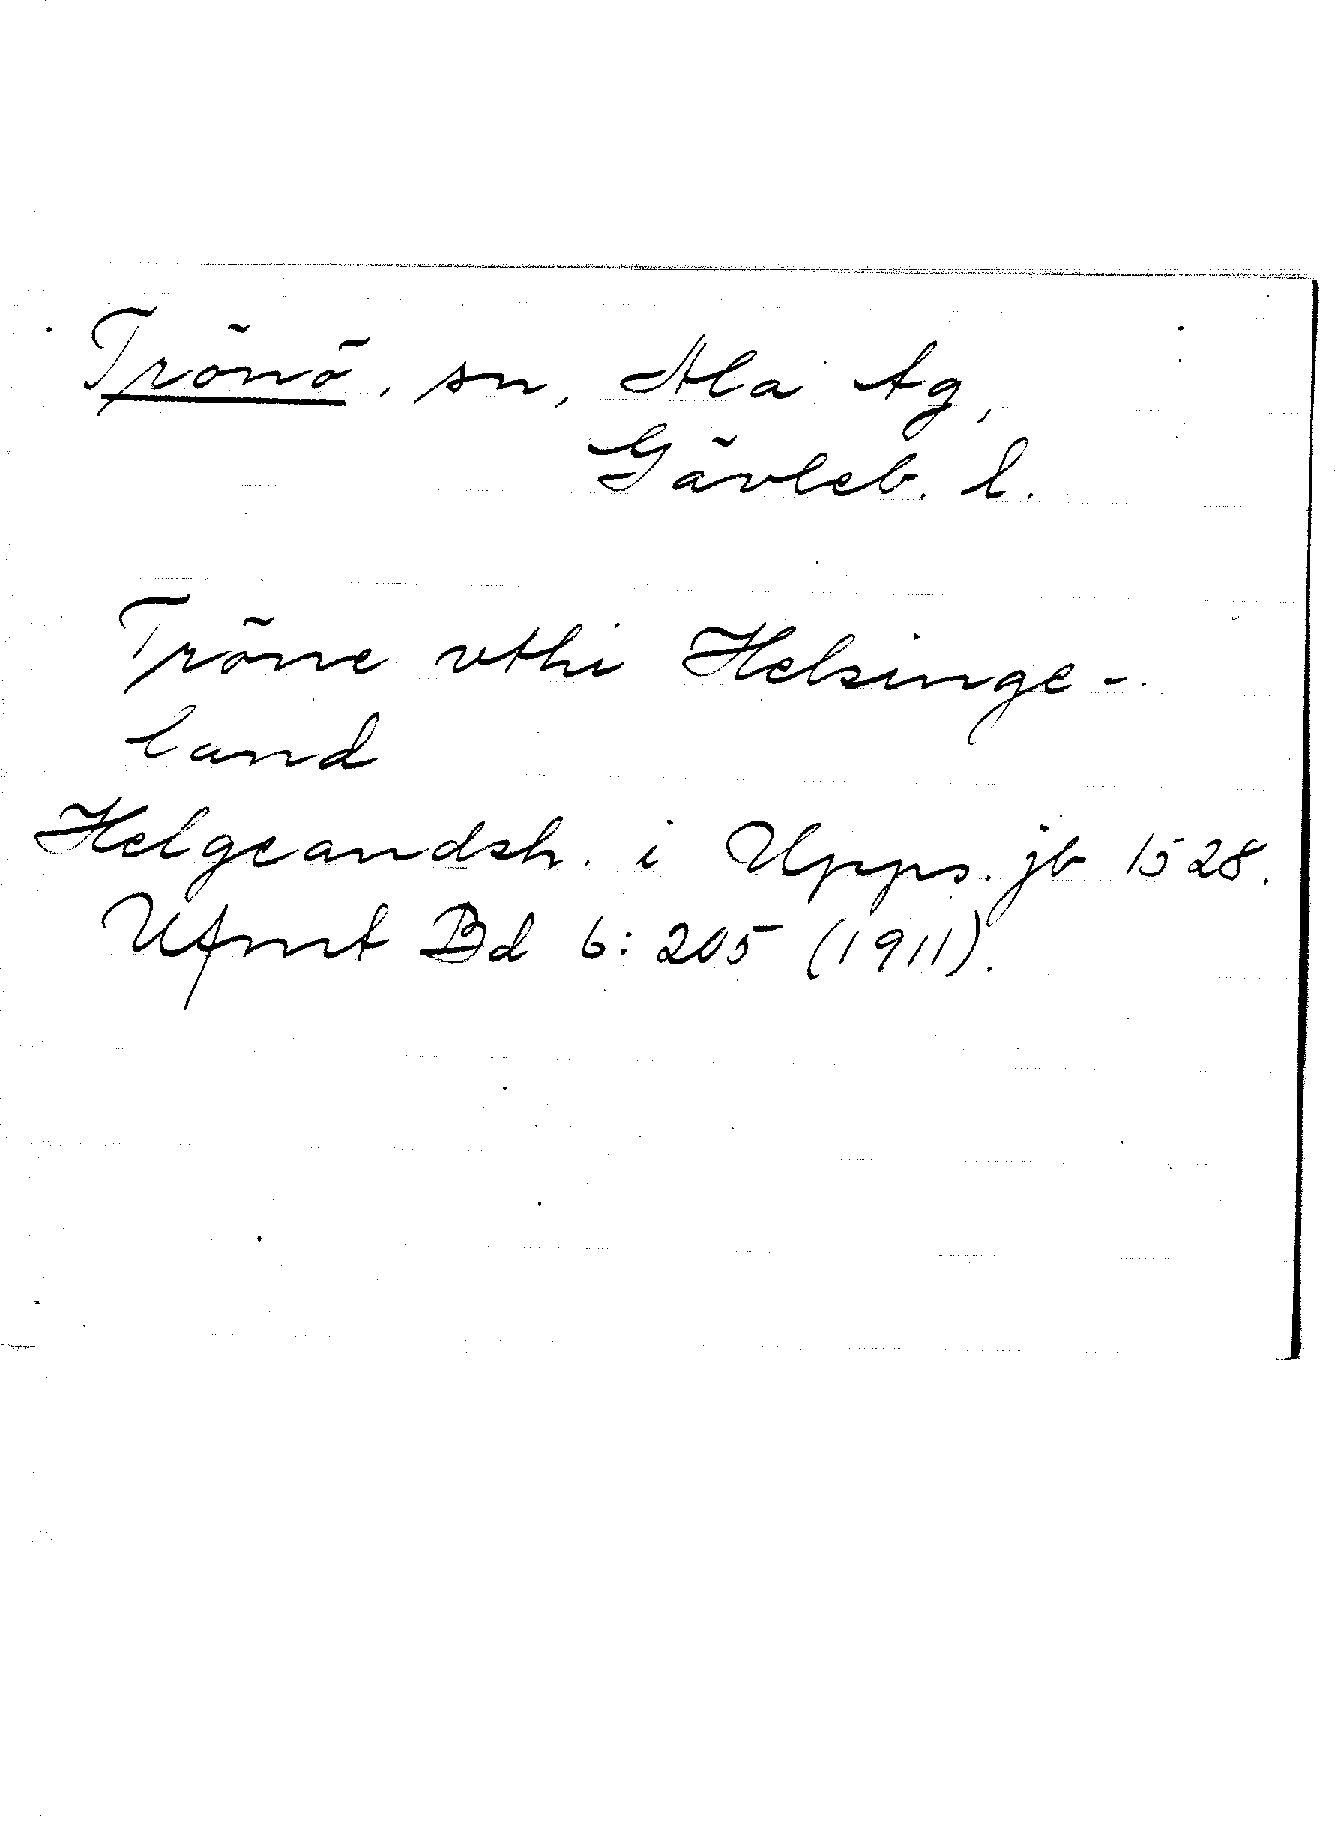 Trönö, sn, Ala tg,
Gävleb. l.
Tröne vthi Helsinge-
land
Helgeandsh. i Upps. jb 1528.
Ufmt Bd 6: 205 (1911).